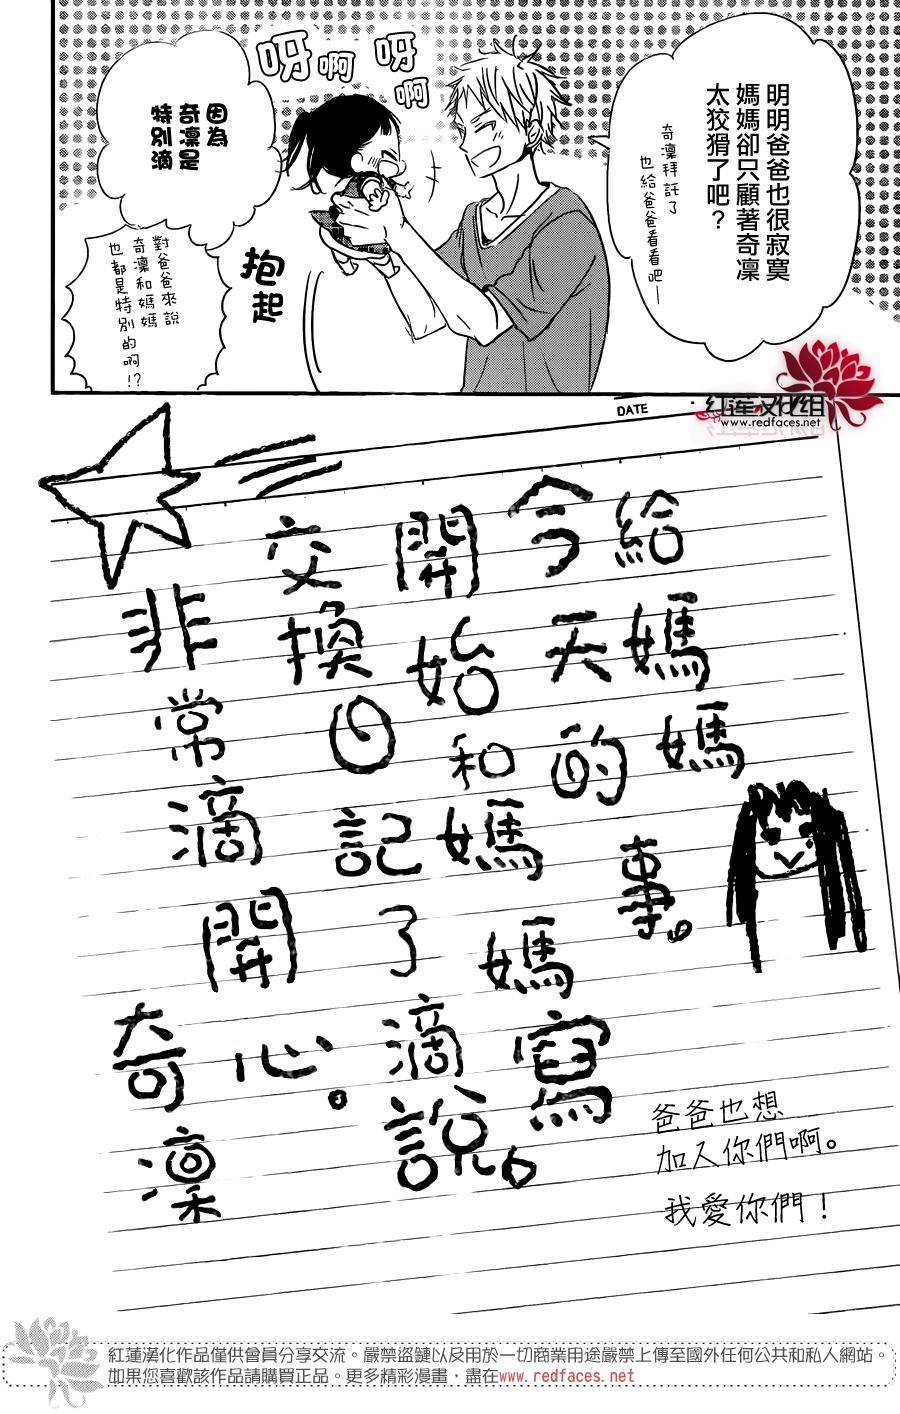 明明爸爸也很寂寞
媽媽卻只顧著奇凜
太狡猾了吧？
奇凜拜託了
也給爸爸看看吧—
呀
啊
呀
啊
抱起
因為
奇凜是
特別滴
對爸爸來說
奇凜和媽媽
也都是特別的啊!?
紅蓮漢化組
www.redfaces.net
DATE
給媽媽
今天的事。
開始和媽媽寫
交換日記了滴說。
非常滴開心。
奇凜
爸爸也想
加入你們啊。
我愛你們！
紅蓮漢化作品僅供會員分享交流。嚴禁盜鏈以及用於一切商業用途嚴禁上傳至國外任何公共和私人網站。
如果您喜歡該作品請購買正品。更多精彩漫畫，盡在www.redfaces.net